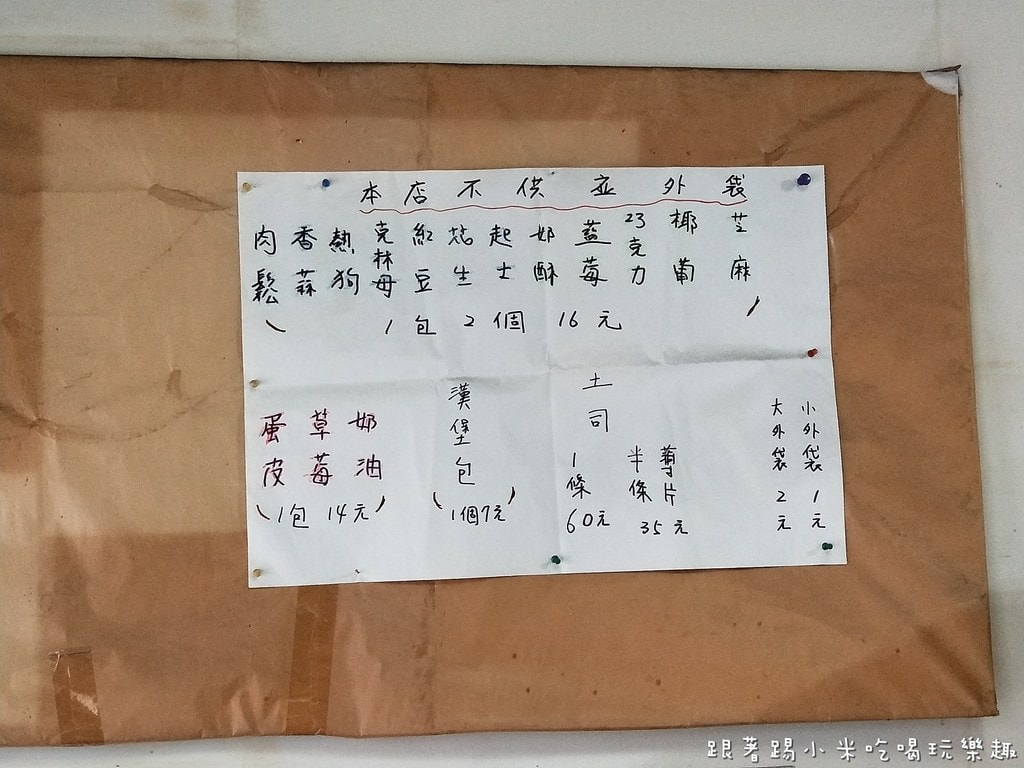 本店不供应外袋
芝麻
椰葡
巧克力
藍莓
奶酥
起士
花生
紅豆
克林母
熱狗
香蒜
肉鬆
(1包2個16元)
小外袋1元
大外袋2元
土司
片
半條
35元
1條
60元
漢堡包
(1個7元)
奶油
草莓
蛋皮
(1包14元)
跟著踢小米吃喝玩樂趣